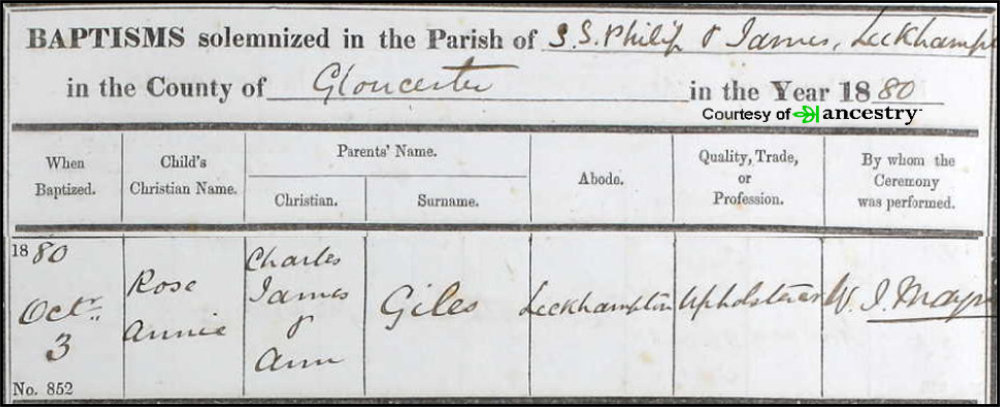 BAPTISMS solemnized in the Parish of S.S. Philip & James, Leckhamp
in the County of Gloucester in the Year 1880
Courtesy of ancestry
When Baptized.
Child's Christian Name.
Parents' Name.
Christian.
Surname.
Abode.
Quality, Trade, or Profession.
By whom the Ceremony was performed.
1880
Octr. 3
Rose Annie
Charles James & Ann
Giles
Leckhampton
Upholsterer
W. J.
No. 852